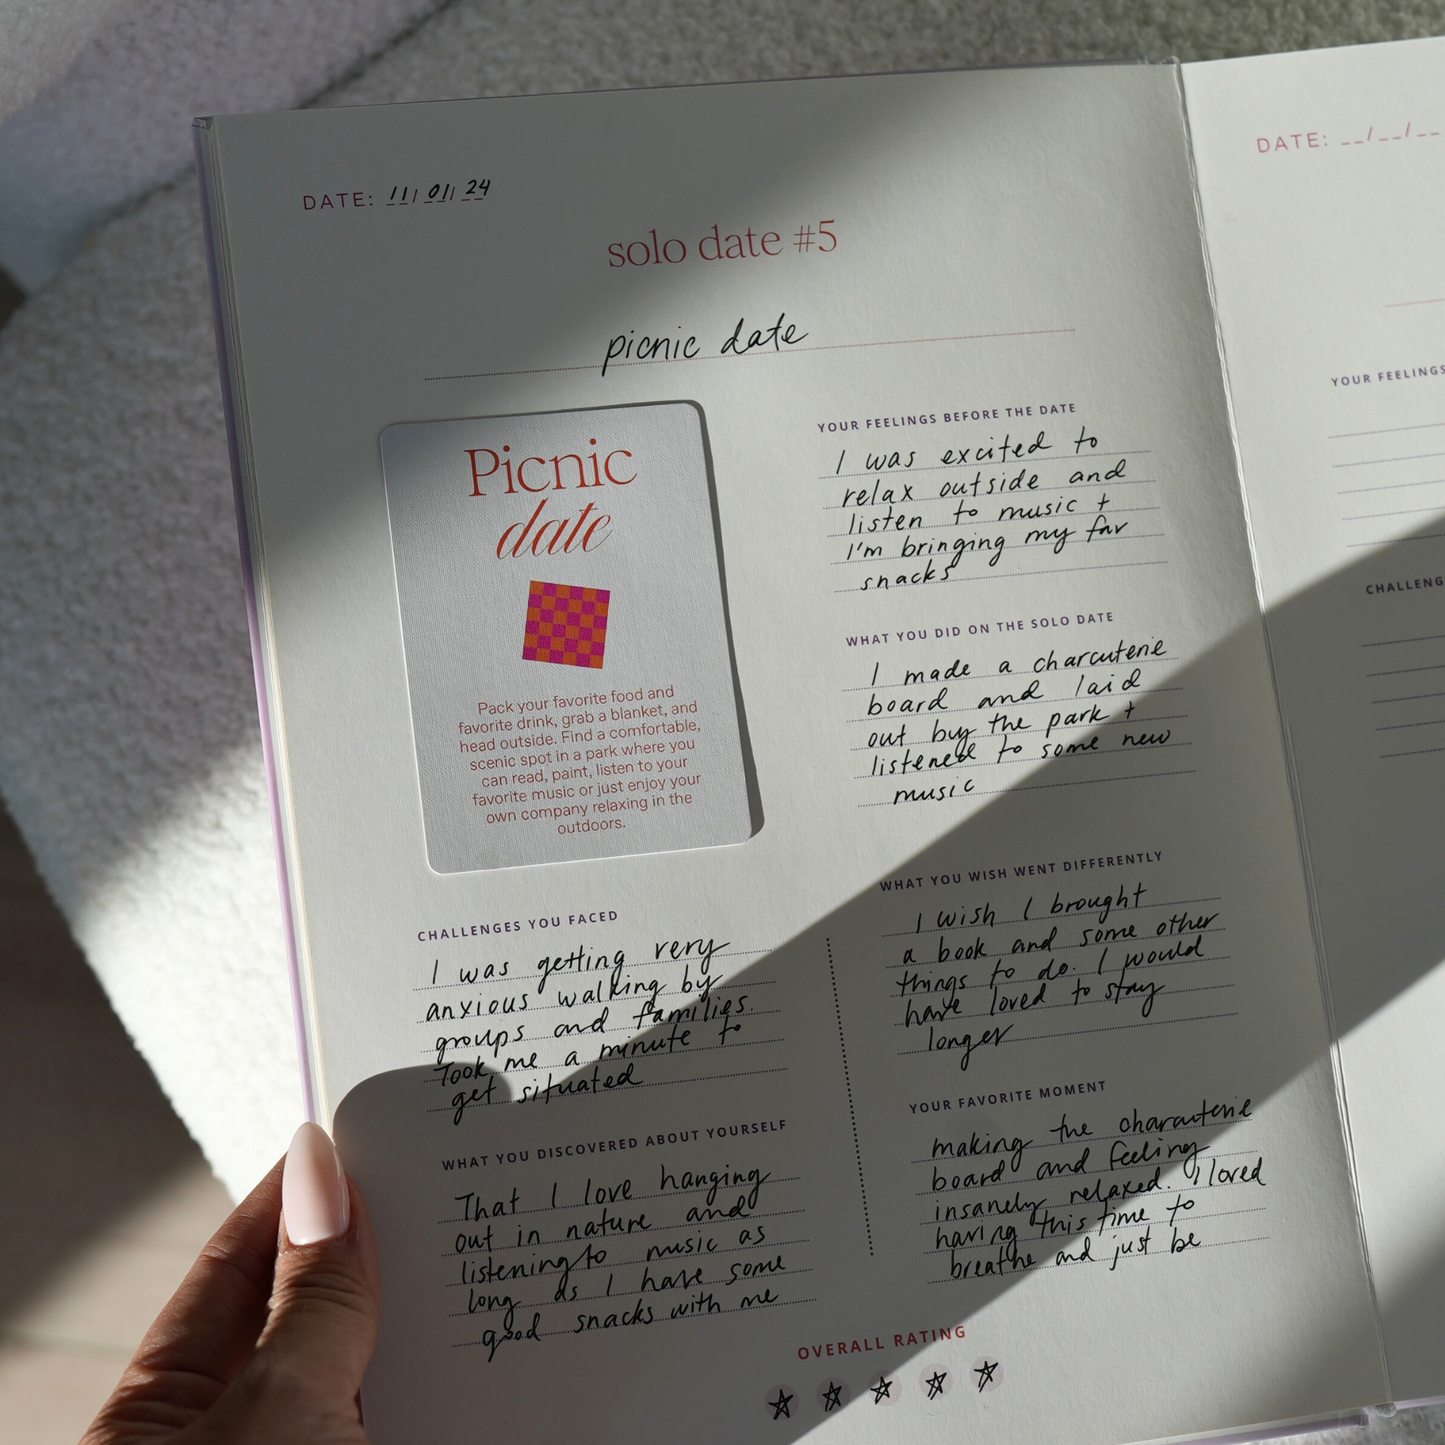 DATE: 11/01/24
solo date #5
picnic date
Picnic
date
Pack your favorite food and
favorite drink, grab a blanket, and
head outside. Find a comfortable,
scenic spot in a park where you
can read, paint, listen to your
favorite music or just enjoy your
own company relaxing in the
outdoors.
YOUR FEELINGS BEFORE THE DATE
I was excited to
relax outside and
listen to music +
I'm bringing my fav
snacks
WHAT YOU DID ON THE SOLO DATE
I made a charcuterie
board and laid
out by the park +
listened to some new
music
CHALLENGES YOU FACED
I was getting very
anxious walking by
groups and families.
Took me a minute to
get situated
WHAT YOU WISH WENT DIFFERENTLY
I wish I brought
a book and some other
things to do. I would
have loved to stay
longer
WHAT YOU DISCOVERED ABOUT YOURSELF
That I love hanging
out in nature and
listening to music as
long as I have some
good snacks with me
YOUR FAVORITE MOMENT
making the charcuterie
board and feeling
insanely relaxed. I loved
having this time to
breathe and just be
OVERALL RATING
DATE: __/__/__
YOUR FEELINGS
CHALLENG